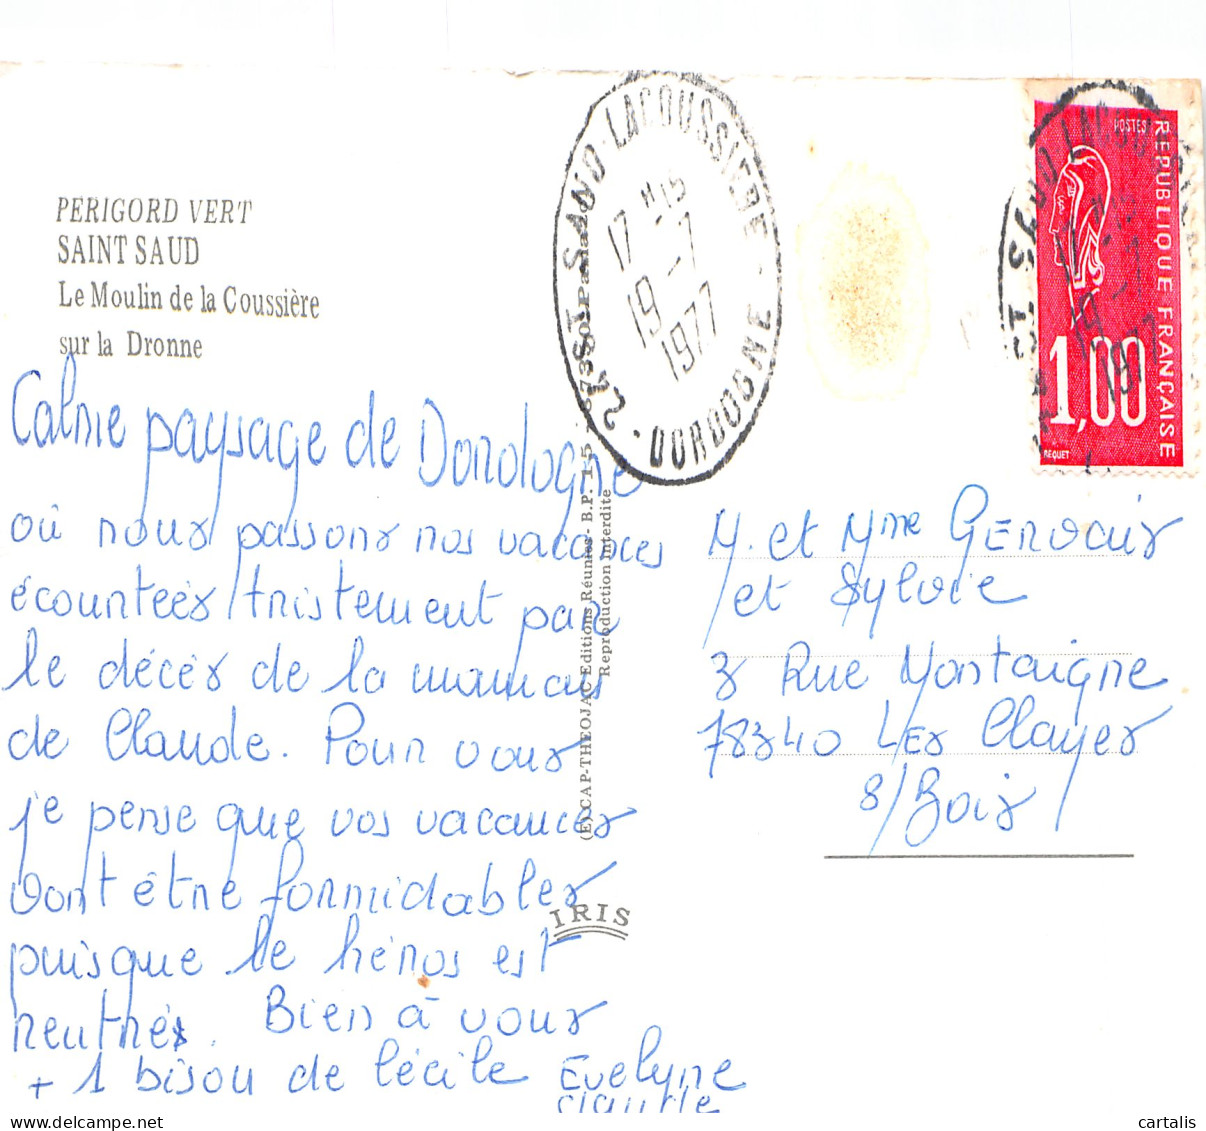 PERIGORD VERT
SAINT SAUD
Le Moulin de la Coussière
sur la Dronne
Calme paysage de Dordogne
où nous passons nos vacances
écourtées tristement par
le décès de la maman
de Claude. Pour vous
je pense que vos vacances
vont être formidables
puisque le héros est
rentré. Bien à vous
+ 1 bisou de Cécile Evelyne
Claude
24 ST SAUD-LACOUSSIERE
DORDOGNE
17 H15
19 - 7
1977
(E) CAP-THEOJAC Editions Réunies - B.P. 15
Reproduction Interdite
IRIS
POSTES
REPUBLIQUE FRANÇAISE
1,00
BEQUET
17 H15
19 - 7
1977
M. et Mme GERVAIS
et Sylvie
3 Rue Montaigne
78340 LES Clayes
s/Bois
cartalis